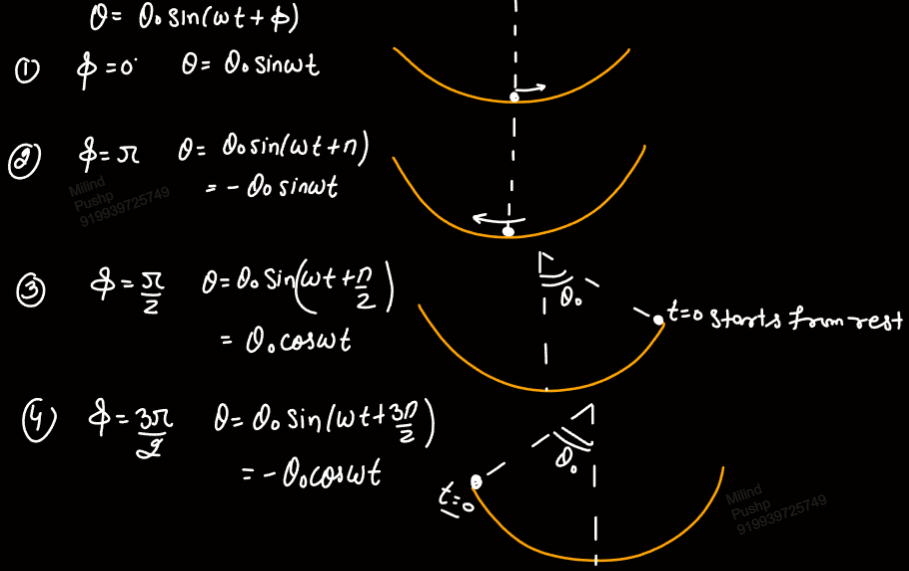 θ = θ₀ sin(ωt + ϕ)
① ϕ = 0 θ = θ₀ sinωt
② ϕ = π θ = θ₀ sin(ωt + π)
= - θ₀ sinωt
Milind
Pushp
919939725749
③ ϕ = π/2 θ = θ₀ sin(ωt + π/2)
= θ₀ cosωt
θ₀
t=0 starts from rest
④ ϕ = 3π/2 θ = θ₀ sin(ωt + 3π/2)
= - θ₀ cosωt
θ₀
t=0
Milind
Pushp
919939725749